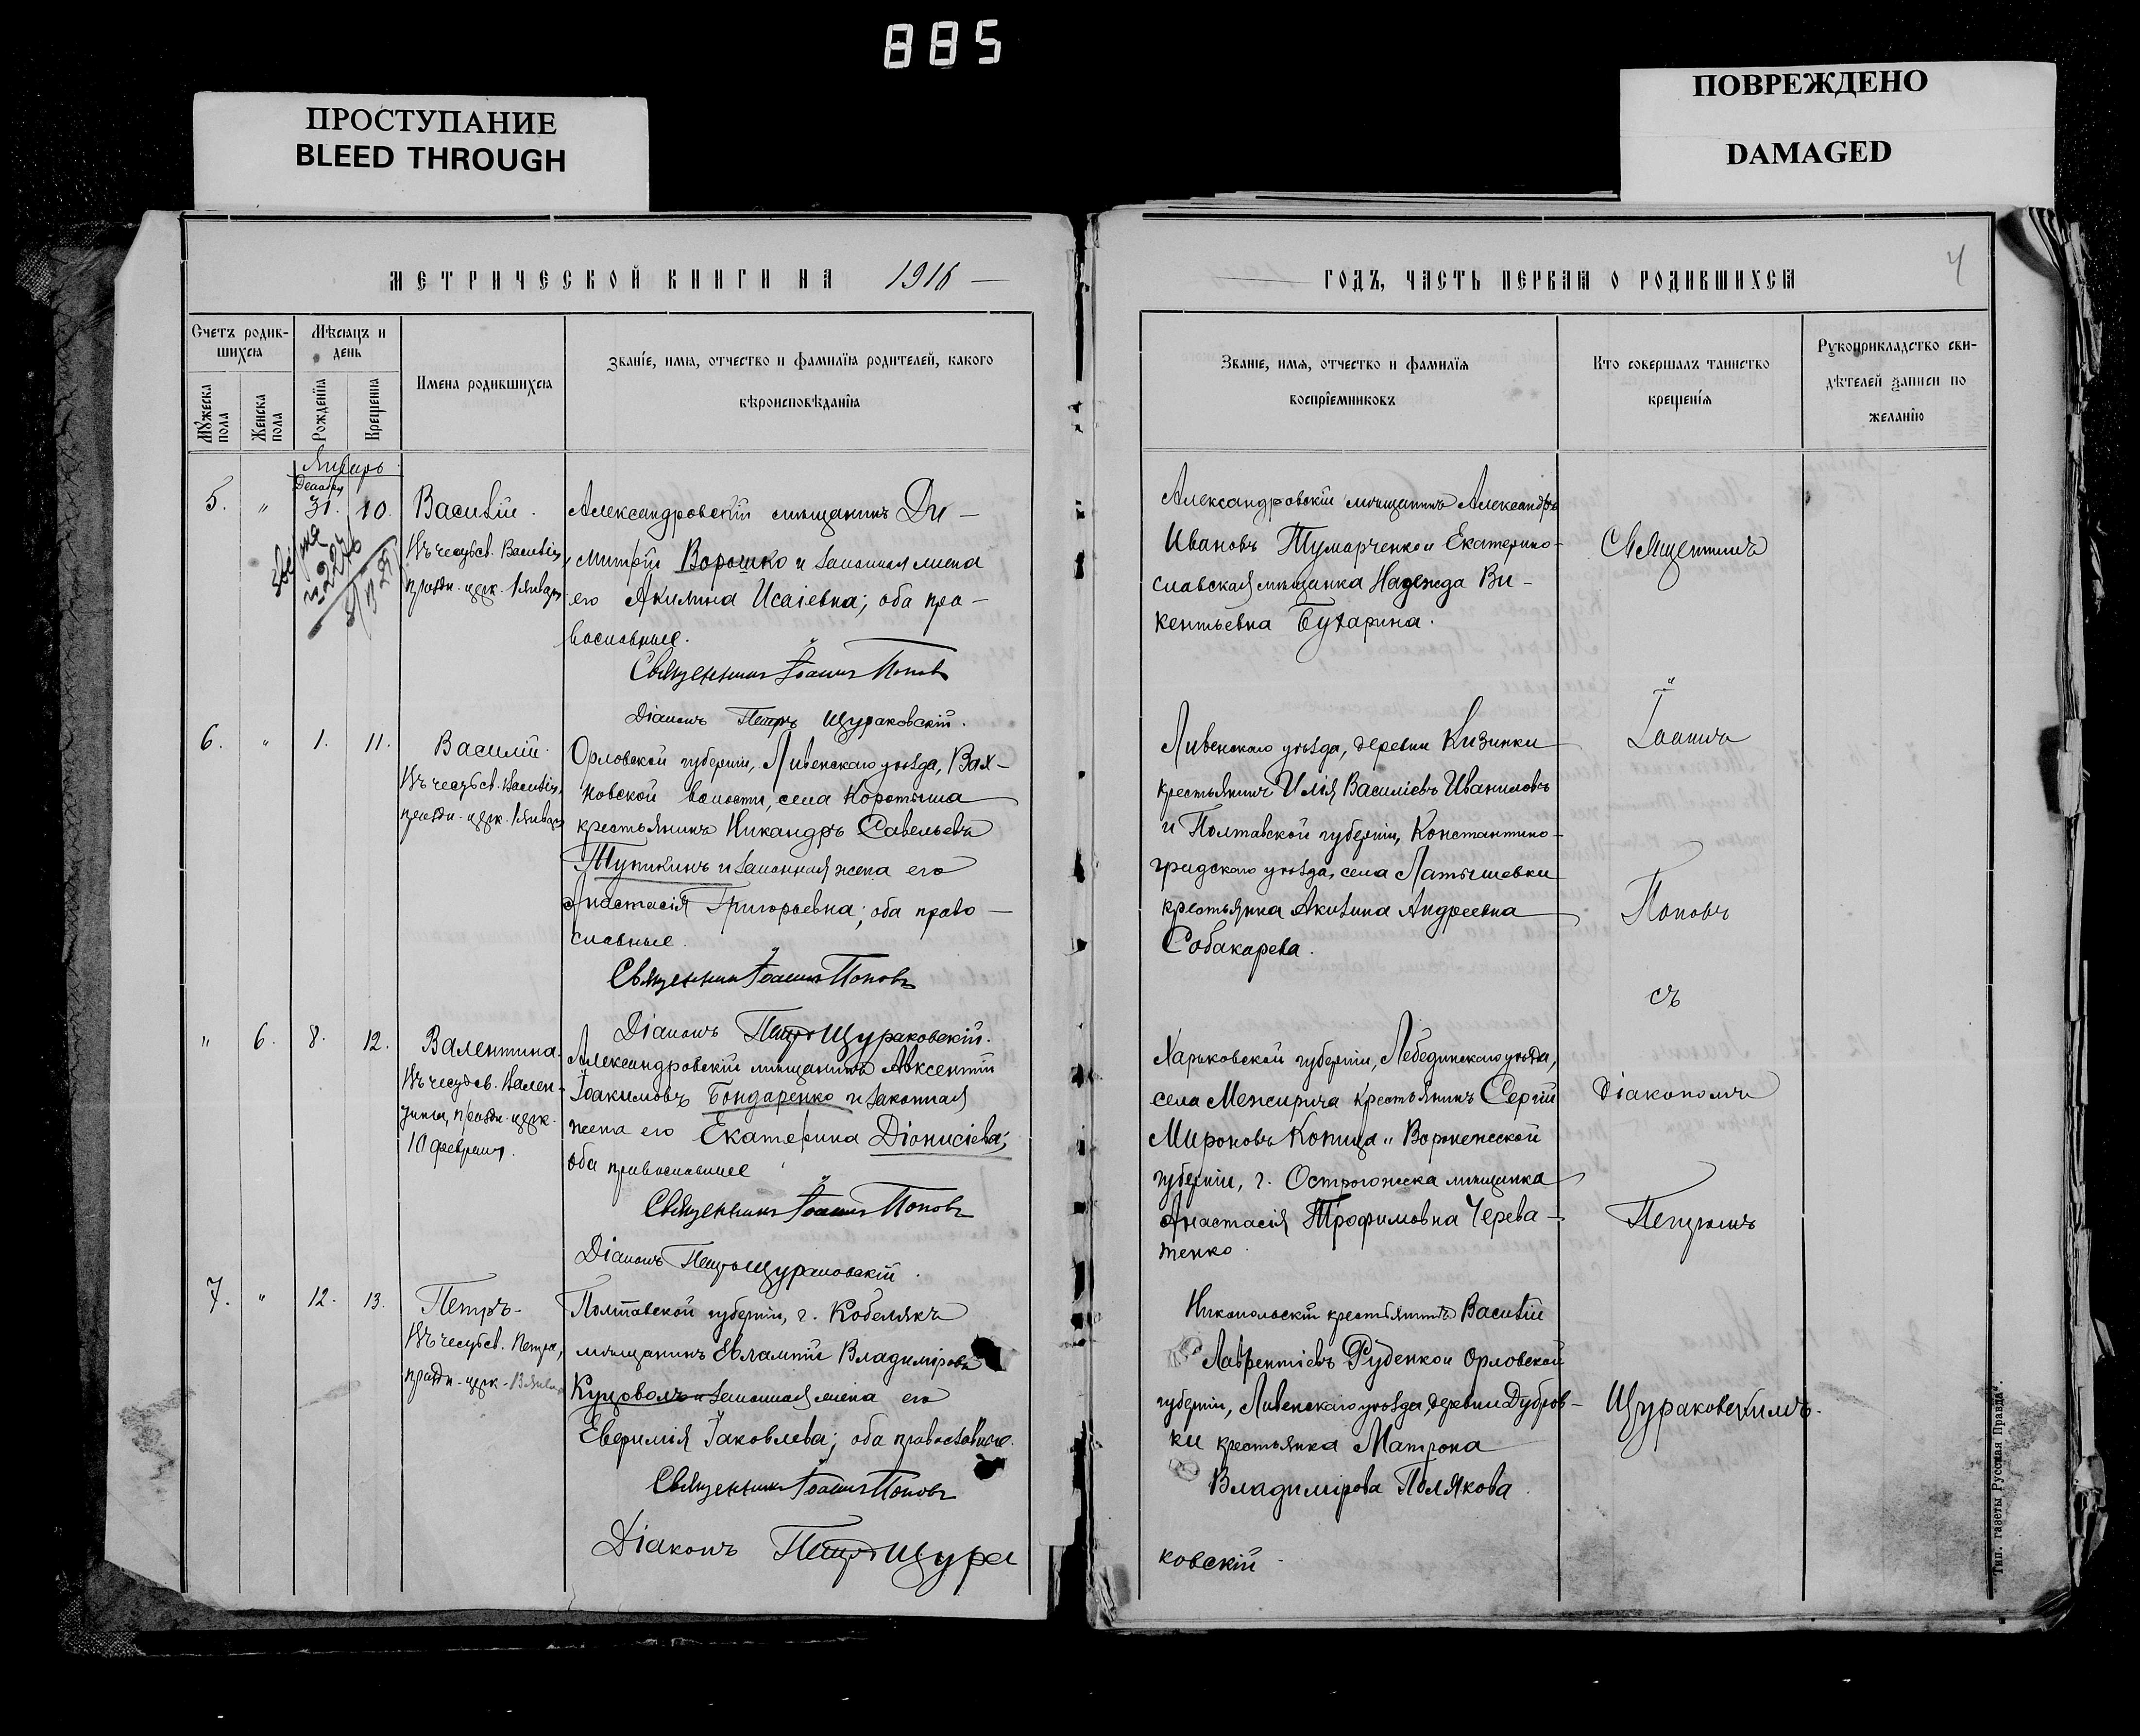 885
ПРОСТУПАНИЕ
BLEED THROUGH
ПОВРЕЖДЕНО
DAMAGED
МЕТРИЧЕСКОЙ КНИГИ НА 1916
Счетъ родив-
шихся
Мѣсяцъ и
день
Имена родившихся
Званіе, имя, отчество и фамилія родителей, какого
вѣроисповѣданія
Мужеска
пола
Женска
пола
Рожденія
Крещенія
Январь
Декабря
5. " 31. 10. Василій.
Въ честь св. Василія,
праздн. церк. 1 Января
Александровскій мѣщанинъ Ди-
митрій Ворошко и законная жена
его Акилина Исаіевна; оба пра-
вославные.
Священникъ Іоаннъ Поповъ
Діаконъ Петръ Щураковскій.
6. " 1. 11. Василій.
Въ честь св. Василія,
праздн. церк. 1 Января
Орловской губерніи, Ливенскаго уѣзда, Вах-
новской волости, села Коротыша
крестьянинъ Никандръ Савельевъ
Тупикинъ и законная жена его
Анастасія Григорьевна; оба право-
славные.
Священникъ Іоаннъ Поповъ
Діаконъ Петръ Щураковскій.
" 6. 8. 12. Валентина.
Въ честь св. Вален-
тины, праздн. церк.
10 февраля.
Александровскій мѣщанинъ Авксентій
Іоакимовъ Бондаренко и законная
жена его Екатерина Діонисіева;
оба православные
Священникъ Іоаннъ Поповъ
Діаконъ Петръ Щураковскій.
7. " 12. 13. Петръ.
Въ честь св. Петра,
праздн. церк.
Полтавской губерніи, г. Кобелякъ
мѣщанинъ Евлампій Владиміровъ
Куцоволъ и законная жена его
Евфимія Іаковлева; оба православные.
Священникъ Іоаннъ Поповъ
Діаконъ Петръ Щура
ГОДЪ, ЧАСТЬ ПЕРВАЯ О РОДИВШИХСЯ
4
Званіе, имя, отчество и фамилія
воспріемниковъ
Кто совершалъ таинство
крещенія
Рукоприкладство сви-
дѣтелей записи по
желанію
Александровскій мѣщанинъ Александръ
Ивановъ Тумарченко и Екатерино-
славская мѣщанка Надежда Ви-
кентьевна Бухарина.
Ливенскаго уѣзда, деревни Кизинки
крестьянинъ Илія Василіевъ
и Полтавской губерніи, Константино-
градскаго уѣзда, села Латышевки
крестьянка Акилина Андреевна
Собакарева.
Харьковской губерніи, Лебединскаго уѣзда,
села Межирича крестьянинъ Сергій
Мироновъ Копица и Воронежской
губерніи, г. Острогожска мѣщанка
Анастасія Трофимовна Черева-
тенко.
Никопольскій крестьянинъ Василій
Лаврентіевъ Руденко и Орловской
губерніи, Ливенскаго уѣзда, деревни Дубров-
ки крестьянка Матрона
Владимірова Полякова.
ковскій.
Священникъ
Іоаннъ
Поповъ
съ
Діакономъ
Петромъ
Щураковскимъ.
Тип. газеты „Русская Правда“.